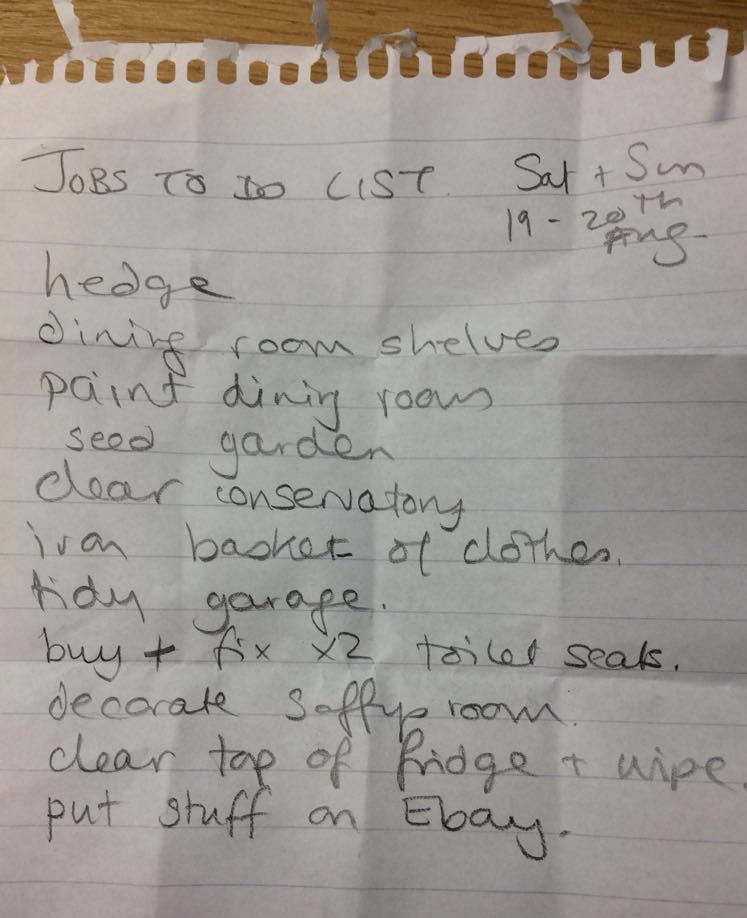 JOBS TO DO LIST. Sat + Sun
19 - 20th Aug
hedge
dining room shelves
paint dining room
seed garden
clear conservatory
iron basket of clothes.
tidy garage.
buy + fix x2 toilet seats.
decorate room.
clear top of fridge + wipe.
put stuff on Ebay.